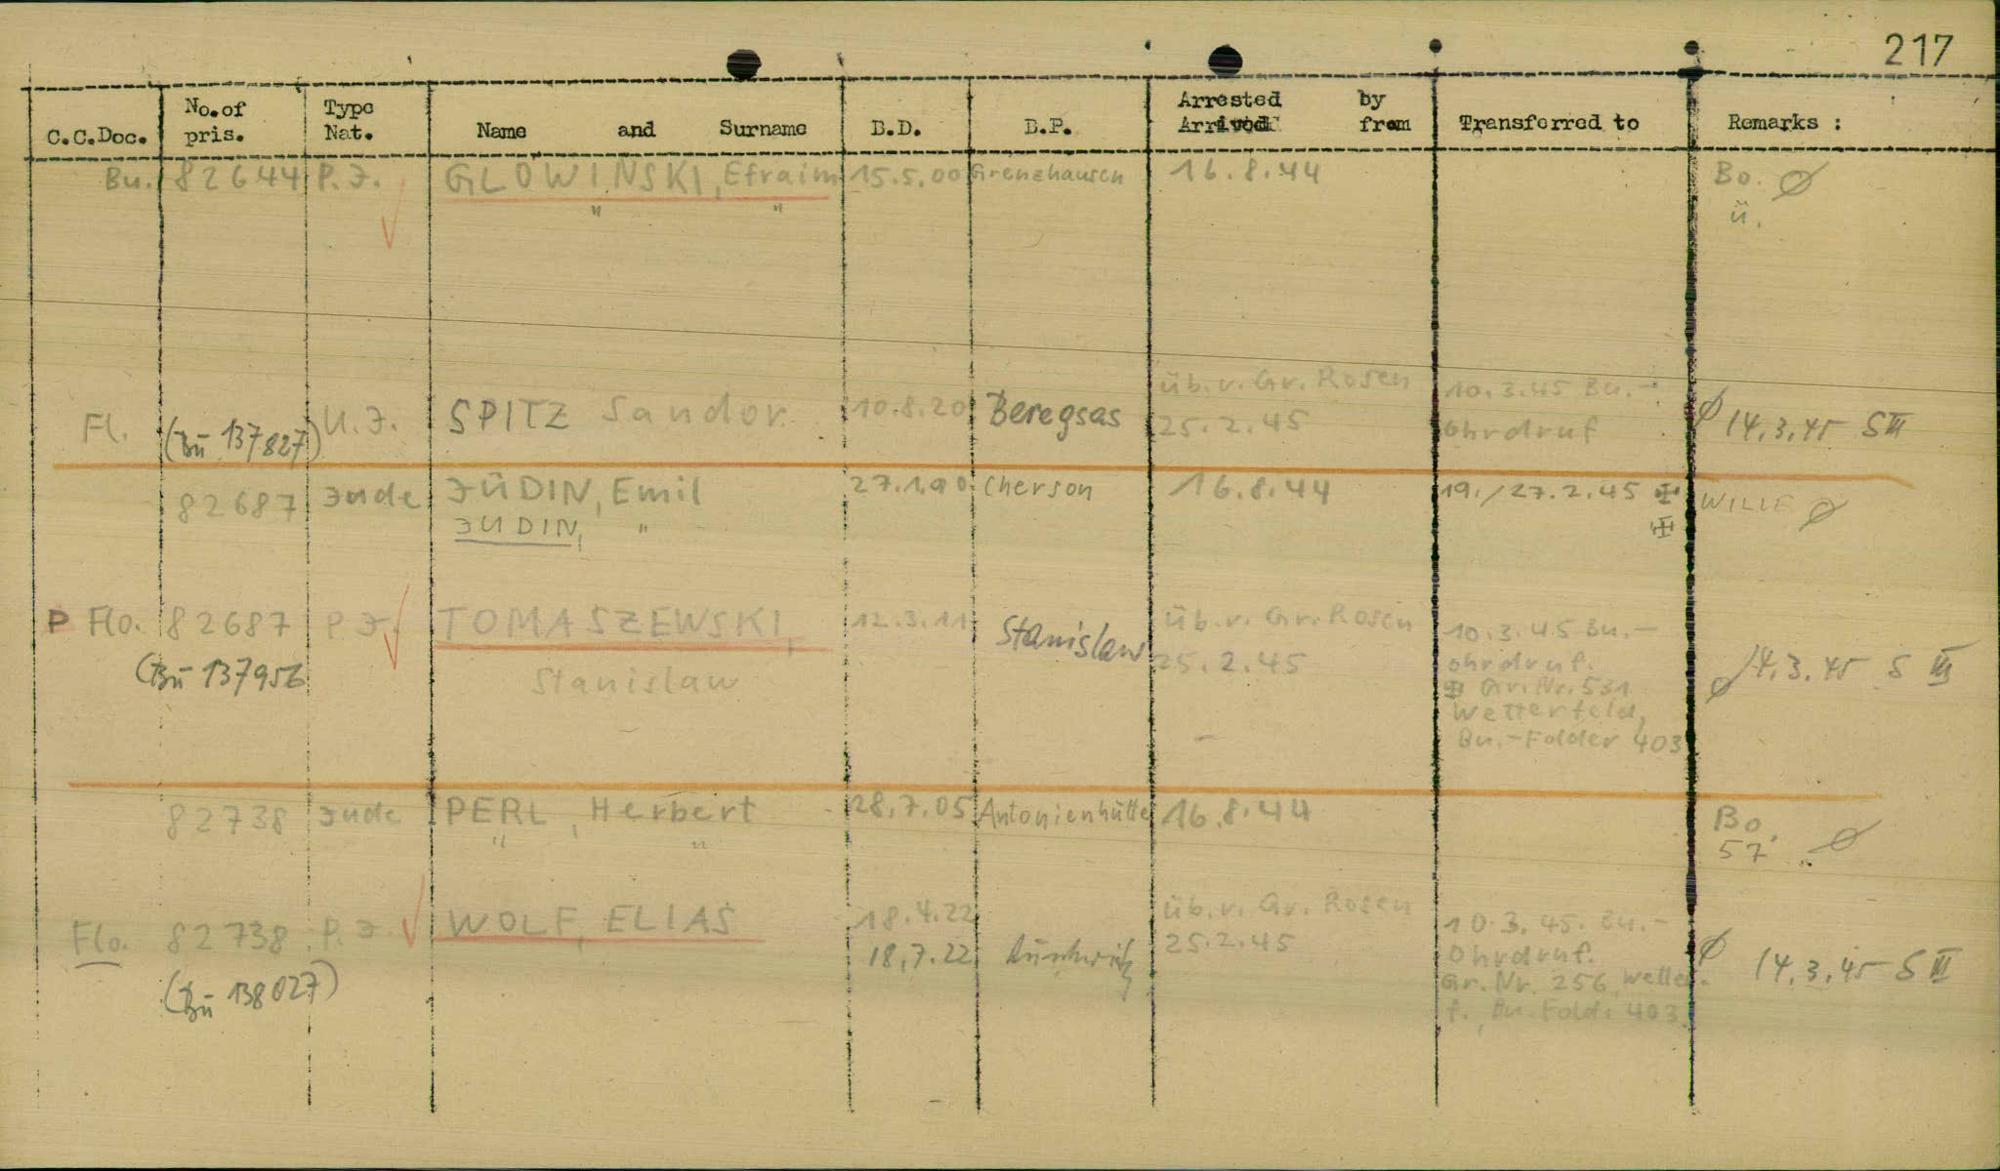 217
C.C.Doc. No. of pris. Type Nat. Name and Surname B.D. B.P. Arrested by Arrived from Transferred to Remarks :
Bu. 82644 P.J. GLOWINSKI, Efraim 15.5.00 Grenzhausen 16.8.44 Bo. Ø
" " ü.
üb.v. Gr. Rosen 10.3.45 Bu.-
Fl. U.J. SPITZ Sandor 10.8.20 Beregsas 25.2.45 Ohrdruf Ø 14.3.45 S III
(Bu 137827)
82687 Jude JÜDIN, Emil 27.1.90 Cherson 16.8.44 19./27.2.45 ✠ WILLE Ø
JUDIN, " ✠
P Flo. 82687 P.J. TOMASZEWSKI, 12.3.11 Stanislaw üb.v. Gr. Rosen 10.3.45 Bu.-
(Bu 137956 Stanislaw 25.2.45 ohrdruf. Ø 14.3.45 S III
✠ Gr. Nr. 531
Wetterfeld,
Bu.-Folder 403
82738 Jude PERL, Herbert 28.7.05 Antonienhütte 16.8.44 Bo.
" " 57 Ø
Flo. 82738 P.J. WOLF, ELIAS 18.4.22 üb.v. Gr. Rosen 10.3.45. Bu.-
18.7.22 25.2.45 Ohrdruf. Ø 14.3.45 S III
(Bu 138027) Gr. Nr. 256, Wetter-
f., Bu. Fold. 403